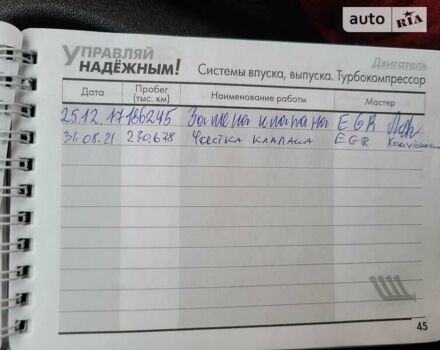 auto RIA
УПРАВЛЯЙ
НАДЁЖНЫМ!
Двигатель
Системы впуска, выпуска. Турбокомпрессор
Дата Пробег (тыс. км) Наименование работы Мастер
25.12.17 186245 Замена клапана EGR
31.08.21 230.678 Чистка клапана EGR
45